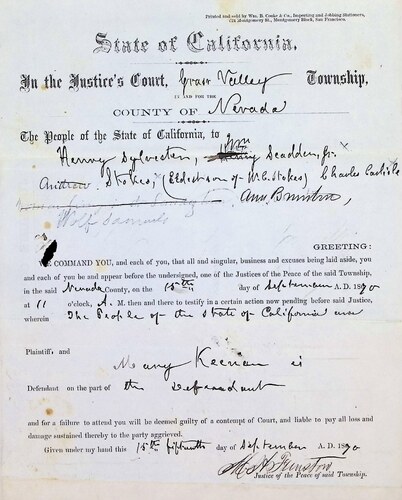 Printed and sold by Wm. B. Cooke & Co., Importing and Jobbing Stationers,
Montgomery St., Montgomery Block, San Francisco.
State of California,
In the Justice's Court, Grass Valley Township,
IN AND FOR THE
COUNTY OF Nevada
The People of the State of California, to
Henry Sylvester, Wm Scadden, Jr.
Andrew Stokes, (Eldest son of W.C. Stokes) Charles Carlisle
Ann
GREETING:
WE COMMAND YOU, and each of you, that all and singular, business and excuses being laid aside, you
and each of you be and appear before the undersigned, one of the Justices of the Peace of the said Township,
in the said Nevada County, on the 15th day of September A. D. 1890
at 11 o'clock, A. M. then and there to testify in a certain action now pending before said Justice,
wherein The People of the State of California are
Plaintiffs and
Mary Keenan is
Defendant on the part of the Defendant
and for a failure to attend you will be deemed guilty of a contempt of Court, and liable to pay all loss
and damage sustained thereby to the party aggrieved.
Given under my hand this 15th fifteenth day of September A. D. 1890
Funston
Justice of the Peace of said Township.